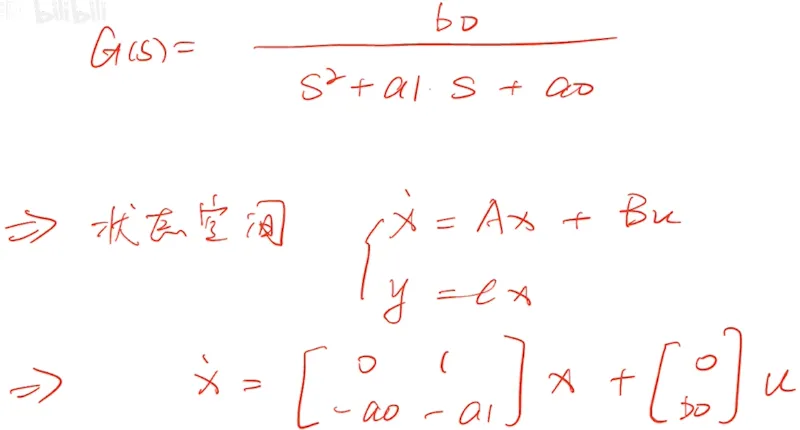 bilibili
G(s) = b0 / (s² + a1·s + a0)
⇒ 状态空间 { ẋ = Ax + Bu
y = cx
⇒ ẋ = [0 1; -a0 -a1] x + [0; b0] u